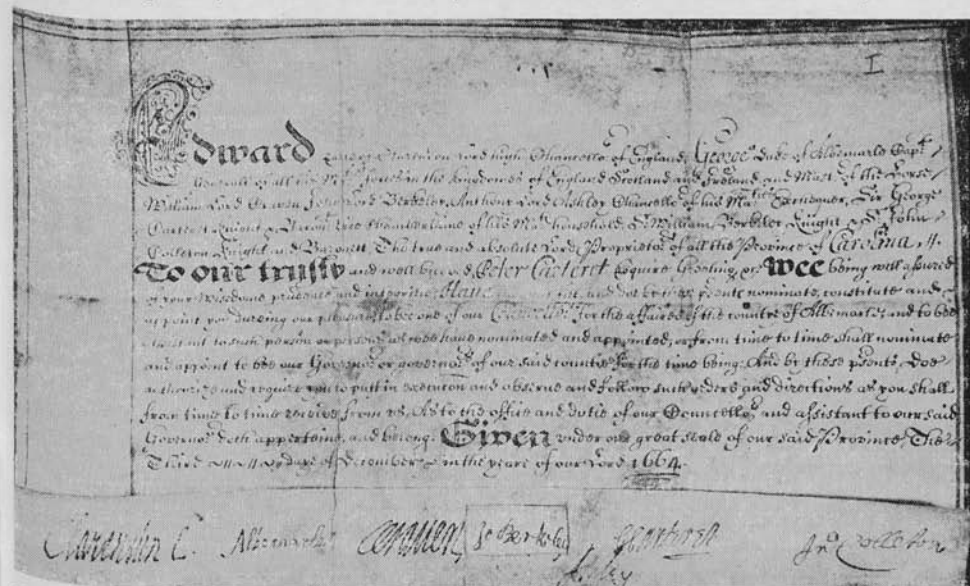 I
Edward Earle of Clarendon Lord high Chancellor of England, George Duke of Albemarle Capt
Generall of all his Mats forces in the Kingdomes of England Scotland and Ireland and Mastr of the Horse
William Lord Craven John Lord Berkeley, Anthony Lord Ashley Chancellor of his Maties Exchequer, Sir George
Carteret Knight & Baront Vice Chamberlaine of his Mats Houshold, Sr William Berkeley Knight & Sr John
Colleton Knight and Baronett The true and absolute Lords Proprietors of all the Province of Carolina
To our trusty and well beloved Peter Carteret Esquire Greeting Wee being well assured
of your wisdome prudence and integritie Have and doe by these psents nominate, constitute and
appoint you during our pleasure to bee one of our Councello for the affaires of the countie of Albemarle, and to bee
assistant to such person or persons as wee have nominated and appointed, or from time to time shall nominate
and appoint to bee our Governor or governors of our said countie for the time being. And by these psents, Doe
authorize and require you to putt in execution and observe and follow such orders and directions as you shall
from time to time receive from us, As to the office and dutie of our Councellor and assistant to our said
Governor doth appertaine, and belong. Given under our great seale of our said Province The
Third day of December in the yeare of our Lord 1664.
Clarendon C. Albemarle Craven Jo Berkeley GCarteret Jno Colleton
Ashley